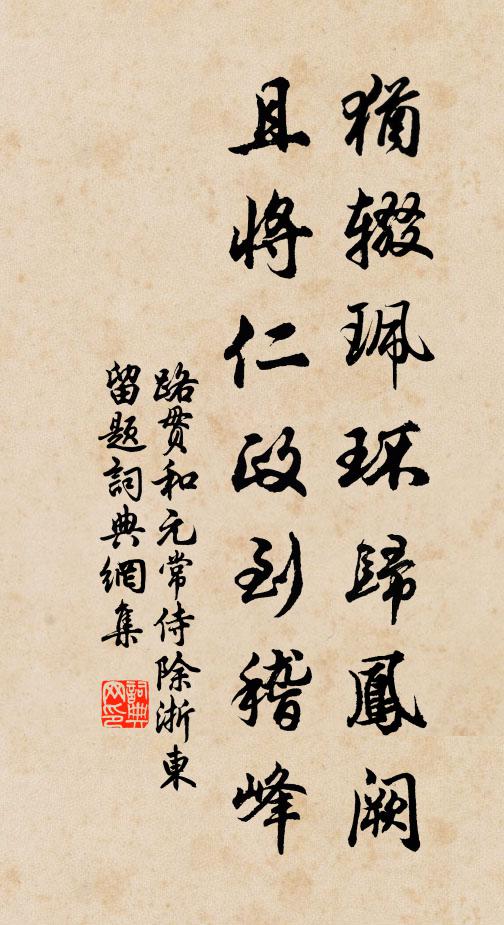 猶輟珮環歸鳳闕
且將仁政到稽峰
路貫和元常侍除浙東
留題詞典網集
詞典
网印